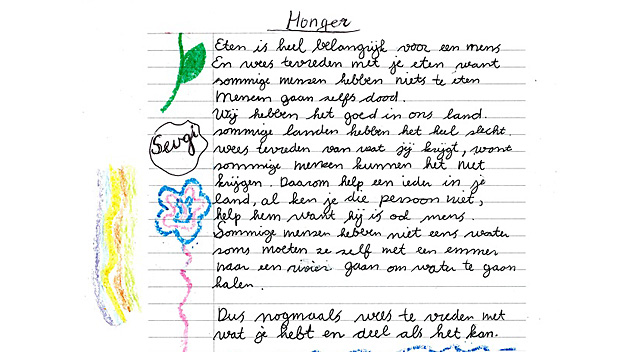 Honger
Eten is heel belangrijk voor een mens
En wees tevreden met je eten want
sommige mensen hebben niets te eten
Mensen gaan zelfs dood.
Wij hebben het goed in ons land.
sommige landen hebben het heel slecht.
wees tevreden van wat jij krijgt, want
sommige mensen kunnen het niet
krijgen. Daarom help een ieder in je
land, al ken je die persoon niet,
help hem want hij is ook mens.
Sommige mensen hebben niet eens water
soms moeten ze zelf met een emmer
naar een rivier gaan om water te gaan
halen.
Dus nogmaals wees te vreden met
wat je hebt en deel als het kan.
Sevgi